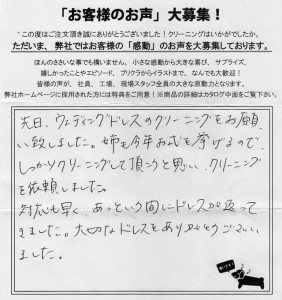 「お客様のお声」大募集！
この度はご注文頂き誠にありがとうございました！クリーニングはいかがでしたか。
ただいま、弊社ではお客様の「感動」のお声を大募集しております。
ほんのささいな事でも構いません。小さな感動から大きな喜び、サプライズ、
嬉しかったことやエピソード、プリクラやイラストまで、なんでも歓迎！
皆様の声が、社員、工場、現場スタッフ全員の大きな原動力となります。
弊社ホームページに採用された方には特典をご用意！※商品の詳細はカタログ中面をご覧下さい。
先日、ウェディングドレスのクリーニングをお願
い致しました。姉も今年お式を挙げるので、
しっかりクリーニングして頂こうと思い、クリーニング
を依頼しました。
対応も早く、あっという間にドレスが返って
きました。大切なドレスをありがとうござい
ました。